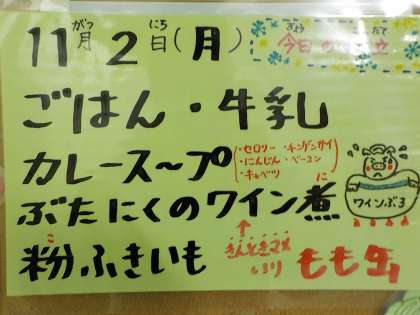 11月2日(月)
がつ にち
今日の
きょう だて
ごはん・牛乳
カレースープ
・セロリー ・チンゲンサイ
・にんじん ・ベーコン
・キャベツ
ぶたにくのワイン煮
に
ワインぶろ
粉ふきいも
こ
↑
きんときマメ
いり
もも缶